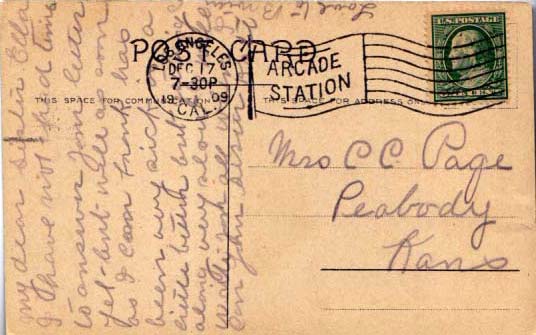 POST CARD
THIS SPACE FOR COMMUNICATION
THIS SPACE FOR ADDRESS ON
LOS ANGELES
DEC 17
7-30P
1909
CAL.
ARCADE
STATION
U.S. POSTAGE
Mrs C C Page
Peabody
Kans
my dear sister Ella
I have not had time
to answer your letter
yet but will as soon
as I can Frank has
been very sick is a
little better but
along very slow
all
Love to